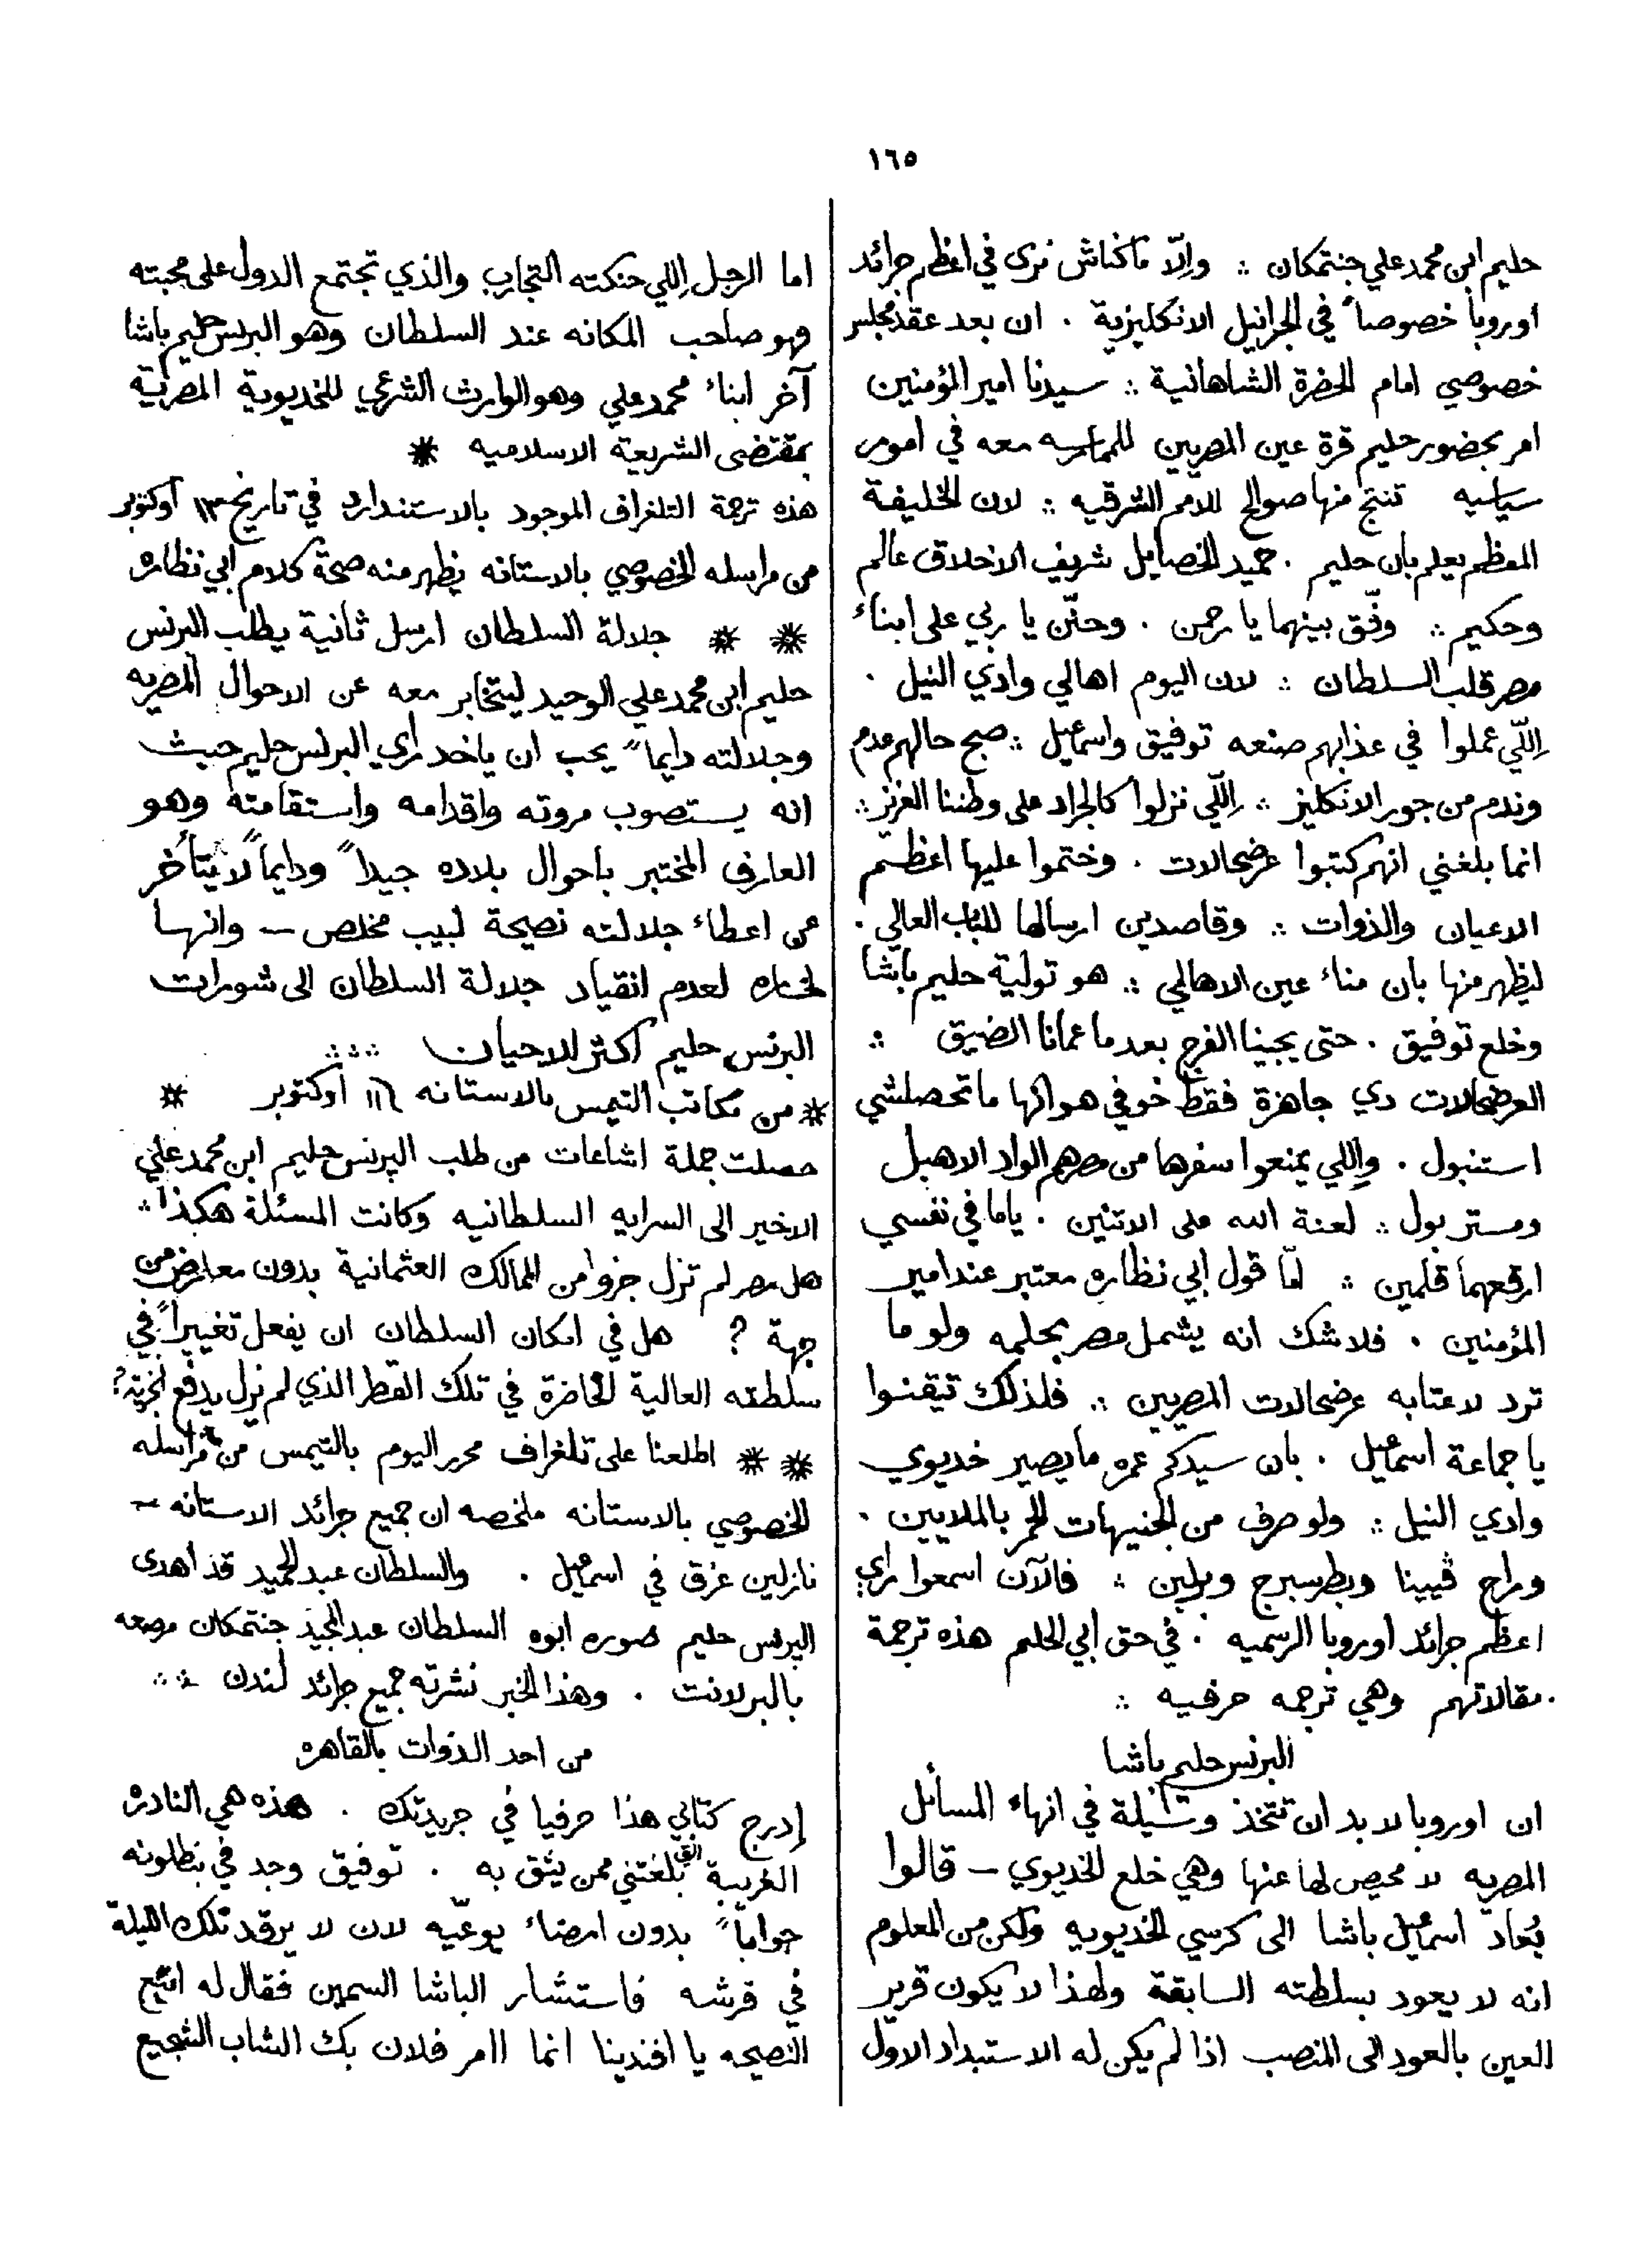 ١٦٥
حليم ابن محمد علي جنتمكان ∴ وإلّا ماكناش نرى في اعظم جرائد
اوروبا خصوصاً في الجرانيل الانكليزية . ان بعد عقد مجلس
خصوصي امام الحضرة الشاهانية ∴ سيدنا امير المؤمنين
امر بحضور حليم قرة عين المصريين معه في امور
سياسيه تنتج منها صوالح للامم الشرقيه ∴ لان الخليفة
المعظم يعلم بان حليم . حميد الخصايل شريف الاخلاق عالم
وحكيم ∴ وفّق بينهما يا رحمن . وحنّن يا ربي على ابناء
مصر قلب السلطان ∴ لان اليوم اهالي وادي النيل .
اللّي عملوا في عذابهم صنعه توفيق واسمعيل ∴ صبح حالهم عدم
وندم من جور الانكليز ∴ اللّي نزلوا كالجراد على وطننا العزيز ∴
انما بلغني انهم كتبوا عرضحالات . وختموا عليها اعظم
الاعيان والذوات ∴ وقاصدين ارسالها للباب العالي .
ليظهر منها بان مناء عين الاهالي ∴ هو تولية حليم باشا
وخلع توفيق . حتى يجينا الفرج بعد ما عمانا الضيق ∴
العرضحالات دي جاهزة فقط خوفي هو انها ما تحصلشي
استنبول . واللي يمنعوا سفرها من مصر هم الواد الاهبل
ومستر بول ∴ لعنة الله على الاتنين . ياما في نفسي
ارقعهما قلمين ∴ امّا قول ابي نظاره معتبر عند امير
المؤمنين . فلا شك انه يشمل مصر بحلمه ولو ما
ترد لاعتابه عرضحالات المصريين ∴ فلذلك تيقنوا
يا جماعة اسمعيل . بان سيدكم عمره ما يصير خديوي
وادي النيل ∴ ولو صرف من الجنيهات الحمر بالملايين .
وراح ڤيينا وبطرسبرج وبرلين ∴ فالآن اسمعوا راي
اعظم جرائد اوروبا الرسميه . في حق ابي الحلم هذه ترجمة
مقالاتهم وهي ترجمه حرفيه ∴
البرنس حليم باشا
ان اوروبا لا بد ان تتخذ وسيلة في انهاء المسائل
المصريه لا محيص لها عنها وهي خلع الخديوي — قالوا
يُعاد اسمعيل باشا الى كرسي الخديويه ولكن من المعلوم
انه لا يعود بسلطته السابقة ولهذا لا يكون قرير
العين بالعود الى المنصب اذا لم يكن له الاستبداد الاول
اما الرجل اللي حنكته التجارب والذي تجتمع الدول على محبته
فهو صاحب المكانه عند السلطان وهو البرنس حليم باشا
آخر ابناء محمد علي وهو الوارث الشرعي للخديوية المصريّة
بمقتضى الشريعة الاسلاميه *
هذه ترجمة التلغراف الموجود بالاستندارد في تاريخ ١٣ اوكتوبر
من مراسله الخصوصي بالاستانه يظهر منه صحة كلام ابي نظاره
* * جلالة السلطان ارسل ثانية يطلب البرنس
حليم ابن محمد علي الوحيد ليتخابر معه عن الاحوال المصريه
وجلالته دايماً يحب ان ياخد راي البرنس حليم حيث
انه يستصوب مروته واقدامه واستقامته وهو
العارف المختبر باحوال بلاده جيداً ودايماً لا يتأخر
عن اعطاء جلالته نصيحة لبيب مخلص — وانها
لخساره لعدم انقياد جلالة السلطان الى شورات
البرنس حليم اكثر الاحيان ∴∴
* من مكاتب التيمس بالاستانه ١٦ اوكتوبر *
حصلت جملة اشاعات من طلب البرنس حليم ابن محمد علي
الاخير الى السرايه السلطانيه وكانت المسئلة هكذا ∴
هل مصر لم تزل جزوا من الممالك العثمانية بدون معارض من
جهة ? هل في امكان السلطان ان يفعل تغييراً في
سلطته العالية الحاضرة في تلك القطر الذي لم يزل يدفع الجزية ?
* * اطلعنا على تلغراف محرر اليوم بالتيمس من مراسله
الخصوصي بالاستانه ملخصه ان جميع جرائد الاستانه —
نازلين عزق في اسمعيل . والسلطان عبد الحميد قد أهدى
البرنس حليم صوره ابوه السلطان عبد المجيد جنتمكان مرصعه
بالبرلانت . وهذا الخبر نشرته جميع جرائد لندن ∴
من احد الذوات بالقاهره
إدرج كتابي هذا حرفيا في جريدتك . هذه هي النادره
الغريبة التي بلغتني ممن يثق به . توفيق وجد في بنطلونه
جواباً بدون امضاء يوعّيه لان لا يرقد تلك الليلة
في فرشه فاستشار الباشا السمين فقال له اتبع
النصيحه يا افندينا انما اامر فلان بك الشاب الشجيع